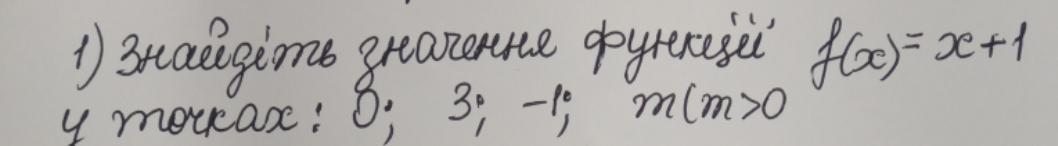 1) Знайдіть значення функції f(x) = x + 1
у точках: 0; 3; -1; m(m>0